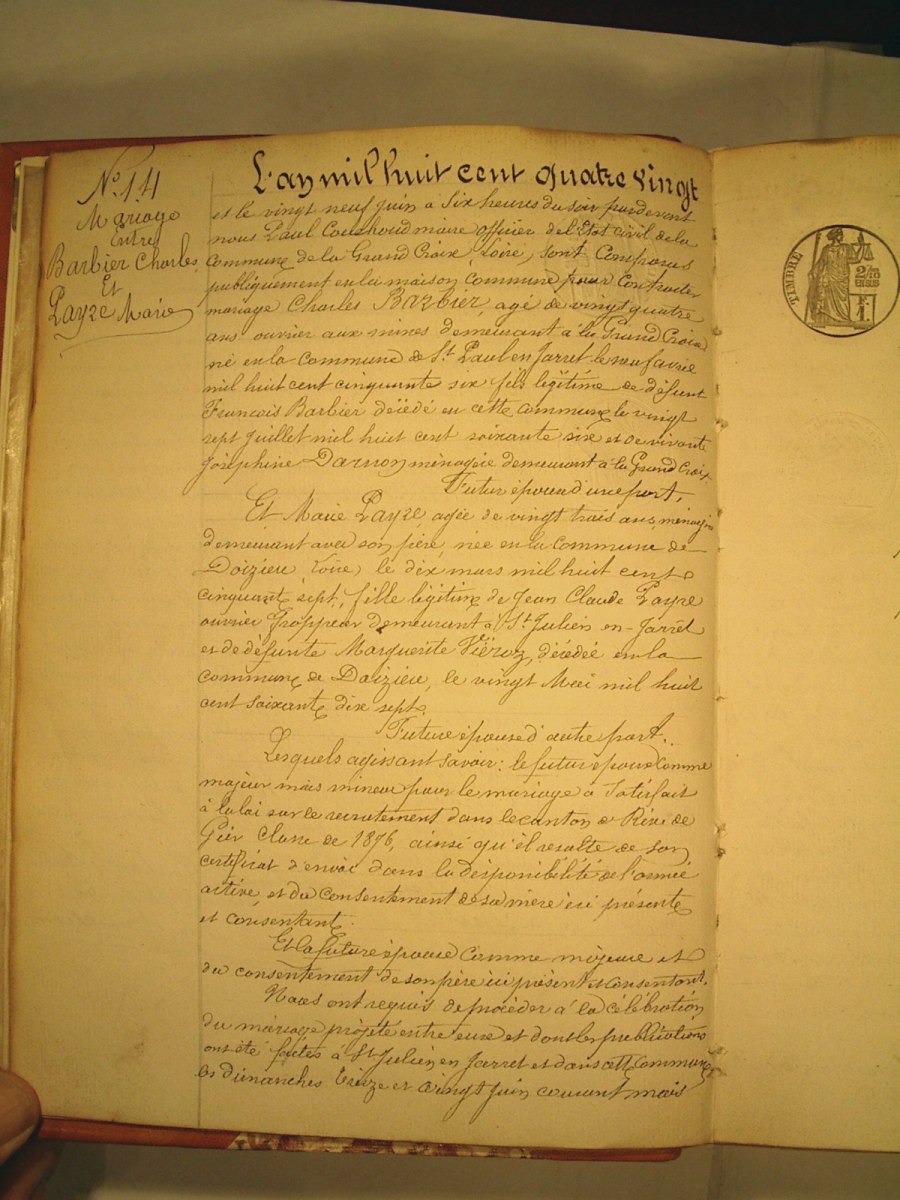 N° 14
Mariage
Entre
Barbier Charles
Et
Payre Marie
L'an mil huit cent quatre vingt
et le vingt neuf juin a six heures du soir pardevant
nous Paul Couchoud maire officier de l'Etat civil de la
Commune de la Grand Croix, Loire, sont Comparus
publiquement en la maison commune pour Contracter
mariage Charles Barbier, agé de vingt quatre
ans ouvrier aux mines demeurant à la Grand Croix
né en la Commune de St Paul en Jarret le neuf avril
mil huit cent cinquante six fils légitime de défunt
Francois Barbier décédé en cette commune le vingt
sept Juillet mil huit cent soixante six et de vivante
Joséphine Darnon ménagère demeurant à la Grand Croix
Futur époux d'une part.
Et Marie Payre, agée de vingt trois ans, ménagère
demeurant avec son père, née en la Commune de
Doizieu, Loire, le dix mars mil huit cent
cinquante sept, fille légitime de Jean Claude Payre
ouvrier frappeur demeurant à St Julien en-Jarret
et de défunte Marguerite décédée en la
commune de Doizieu, le vingt Mai mil huit
cent soixante dix sept.
Future épouse d'autre part.
Lesquels agissant savoir: le futur époux Comme
majeur mais mineur pour le mariage a satisfait
à la loi sur le recrutement dans le canton de Rive de
Gier Classe de 1876, ainsi qu'il résulte de son
certificat d'envoi dans la disponibilité de l'armée
active, et du Consentement de sa mère ici présente
et consentante.
Et la future épouse Comme majeure et
du consentement de son père ici présent et consentant.
Nous ont requis de procéder à la célébration
du mariage projeté entre eux et dont les publications
ont été faites à St Julien en Jarret et dans cette Commune
les dimanches treize et vingt juin courant mois
TIMBRE
2/10
EN SUS
F.
1.